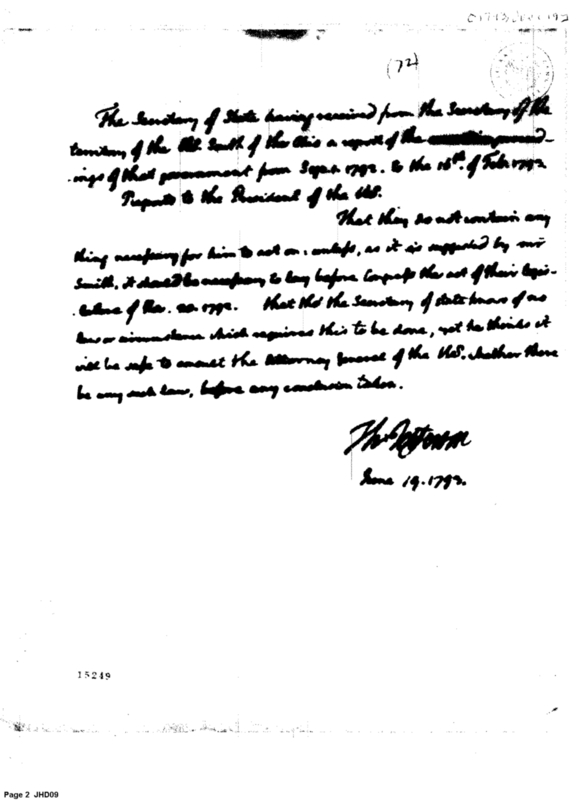 (72)
The Secretary of State having received from the Secretary of the
territory of the US. South of the Ohio a report of the proceed-
-ings of that government from Sept. 1792. to the 16th. of Feb. 1793
Reports to the President of the US.
That they do not contain any
thing necessary for him to act on: unless, as it is suggested by mr
Smith, it should be necessary to lay before Congress the act of their legis-
-lature of Nov. 20. 1792. that tho' the Secretary of state knows of no
law or circumstance which requires this to be done, yet he thinks it
will be safe to consult the Attorney General of the US. whether there
be any such law, before any conclusion taken.
Th: Jefferson
June 19. 1793.
15249
Page 2 JHD09